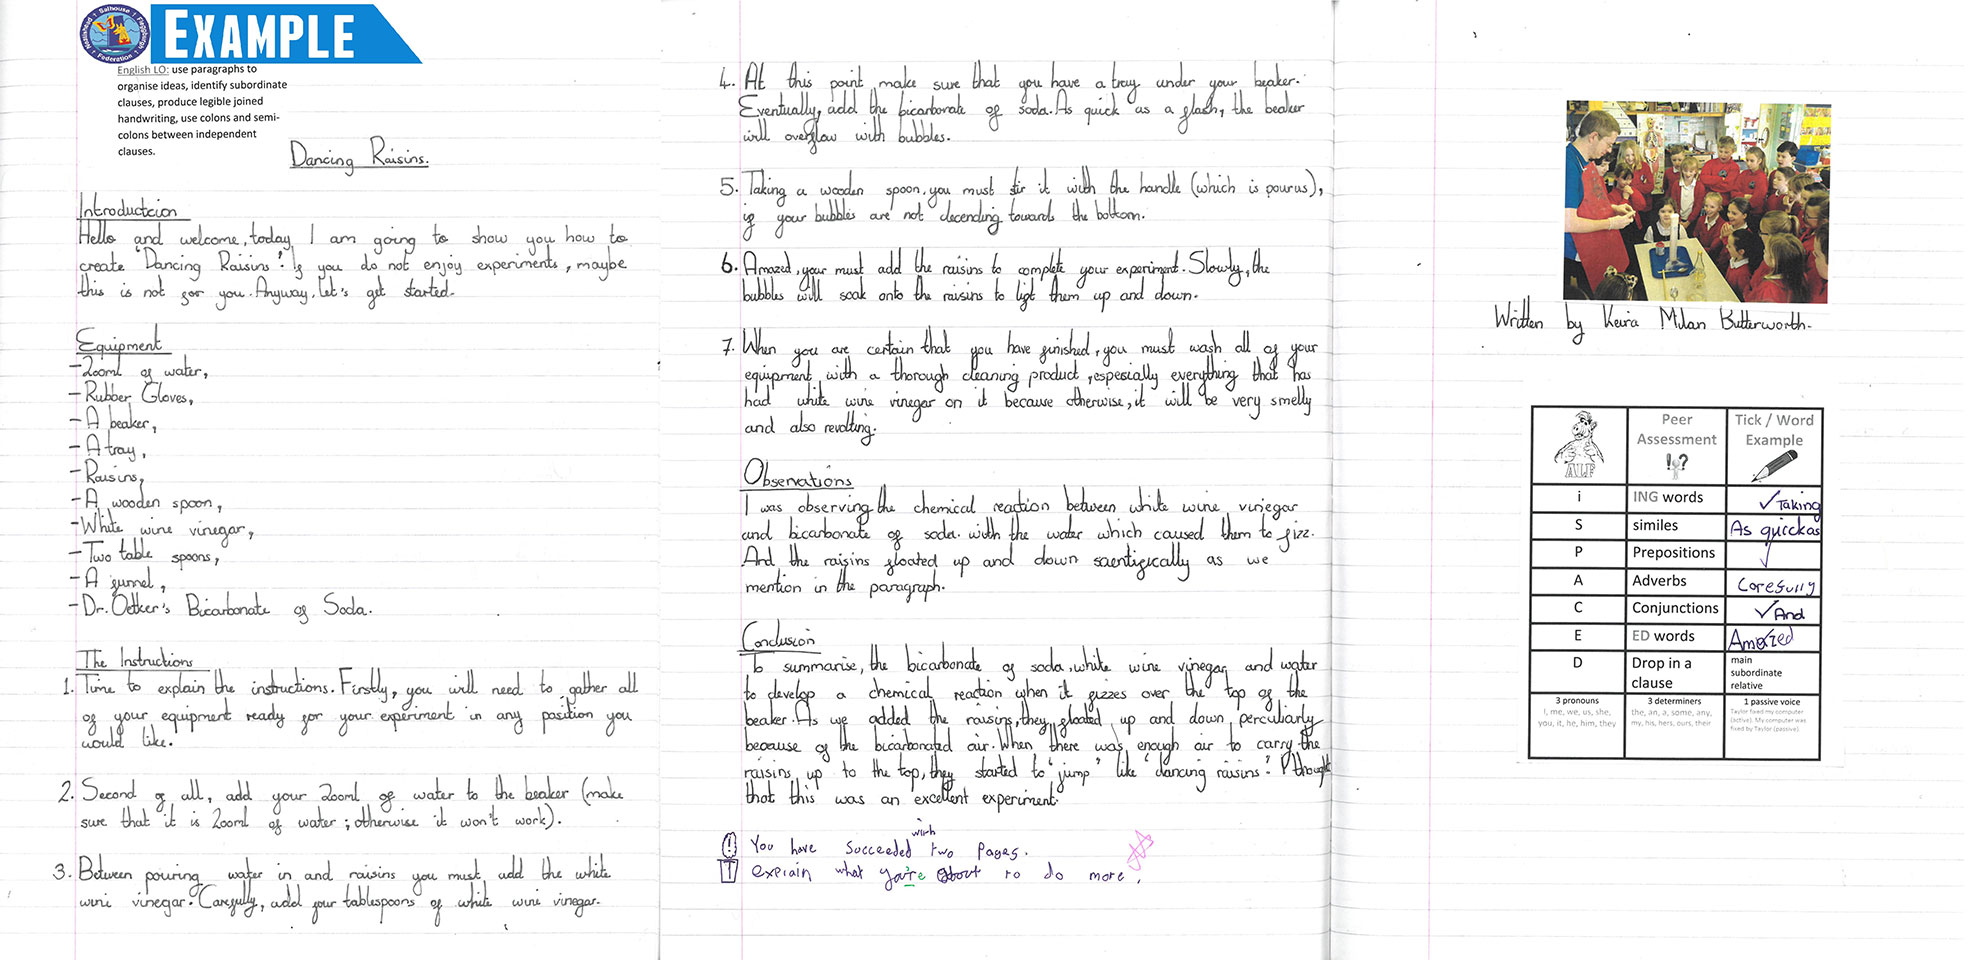 EXAMPLE
Salhouse
Neatishead
Fleggburgh
Federation
English LO: use paragraphs to
organise ideas, identify subordinate
clauses, produce legible joined
handwriting, use colons and semi-
colons between independent
clauses.
Dancing Raisins.
Introductcion
Hello and welcome, today I am going to show you how to
create 'Dancing Raisins'. If you do not enjoy experiments, maybe
this is not for you. Anyway, let's get started.
Equipment
-200ml of water,
-Rubber Gloves,
-A beaker,
-A tray,
-Raisins,
-A wooden spoon,
-White wine vinegar,
-Two table spoons,
-A funnel,
-Dr. Oetker's Bicarbonate of Soda.
The Instructions
1. Time to explain the instructions. Firstly, you will need to gather all
of your equipment ready for your experiment in any position you
would like.
2. Second of all, add your 200ml of water to the beaker (make
sure that it is 200ml of water; otherwise it won't work).
3. Between pouring water in and raisins you must add the white
wini vinegar. Carefully, add four tablespoons of white wini vinegar.
4. At this point make sure that you have a tray under your beaker.
Eventually, add the bicarbonate of soda. As quick as a flash, the beaker
will overflow with bubbles.
5. Taking a wooden spoon, you must stir it with the handle (which is pourus),
if your bubbles are not decending towards the bottom.
6. Amazed, your must add the raisins to complete your experiment. Slowly, the
bubbles will soak onto the raisins to lift them up and down.
7. When you are certain that you have finished, you must wash all of your
equipment with a thorough cleaning product, especially everything that has
had white wine vinegar on it because otherwise, it will be very smelly
and also revolting.
Observations
I was observing the chemical reaction between white wine vinegar
and bicarbonate of soda with the water which caused them to fizz.
And the raisins floated up and down scientifically as we
mention in the paragraph.
Conclusion
To summarise, the bicarbonate of soda, white wine vinegar and water
to develop a chemical reaction when it fizzes over the top of the
beaker. As we added the raisins, they floated up and down perculiarly
because of the bicarbonated air. When there was enough air to carry the
raisins up to the top, they started to 'jump' like 'dancing raisins'. I thought
that this was an excellent experiment.
You have succeeded with two pages.
T explain what you're about to do more.
Written by Keira Milan Butterworth.
ALF
Peer Assessment !?
Tick / Word Example
i ING words ✓Taking
S similes As quick as
P Prepositions ✓
A Adverbs Carefully
C Conjunctions ✓And
E ED words Amazed
D Drop in a clause
main
subordinate
relative
3 pronouns
I, me, we, us, she,
you, it, he, him, they
3 determiners
the, an, a, some, any,
my, his, hers, ours, their
1 passive voice
Taylor fixed my computer
(active). My computer was
fixed by Taylor (passive).